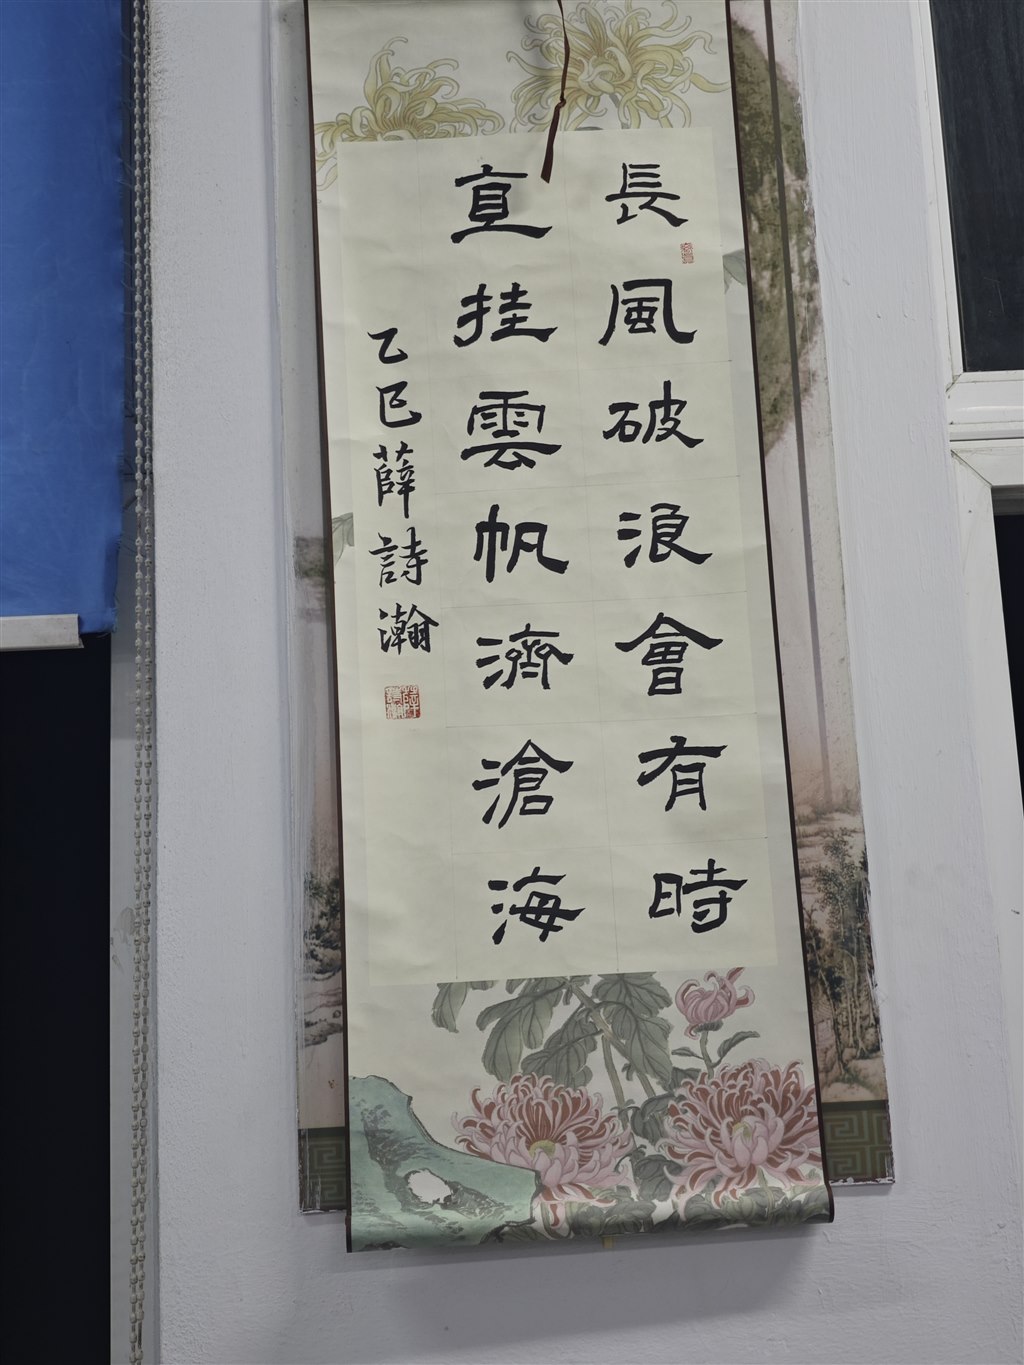 長風破浪會有時
直挂雲帆濟滄海
乙巳薛詩瀚